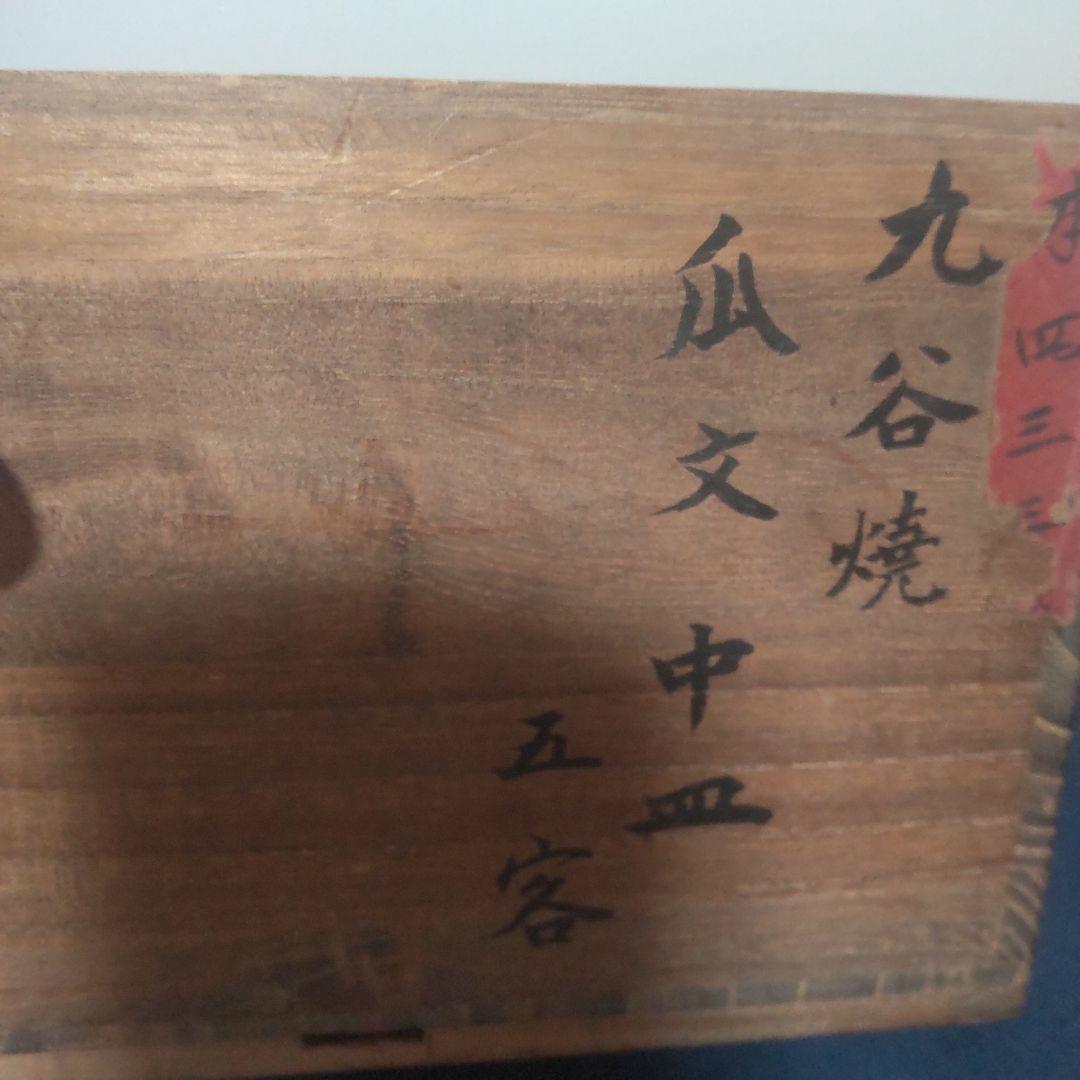 四三三
九谷燒
瓜文 中皿
五客